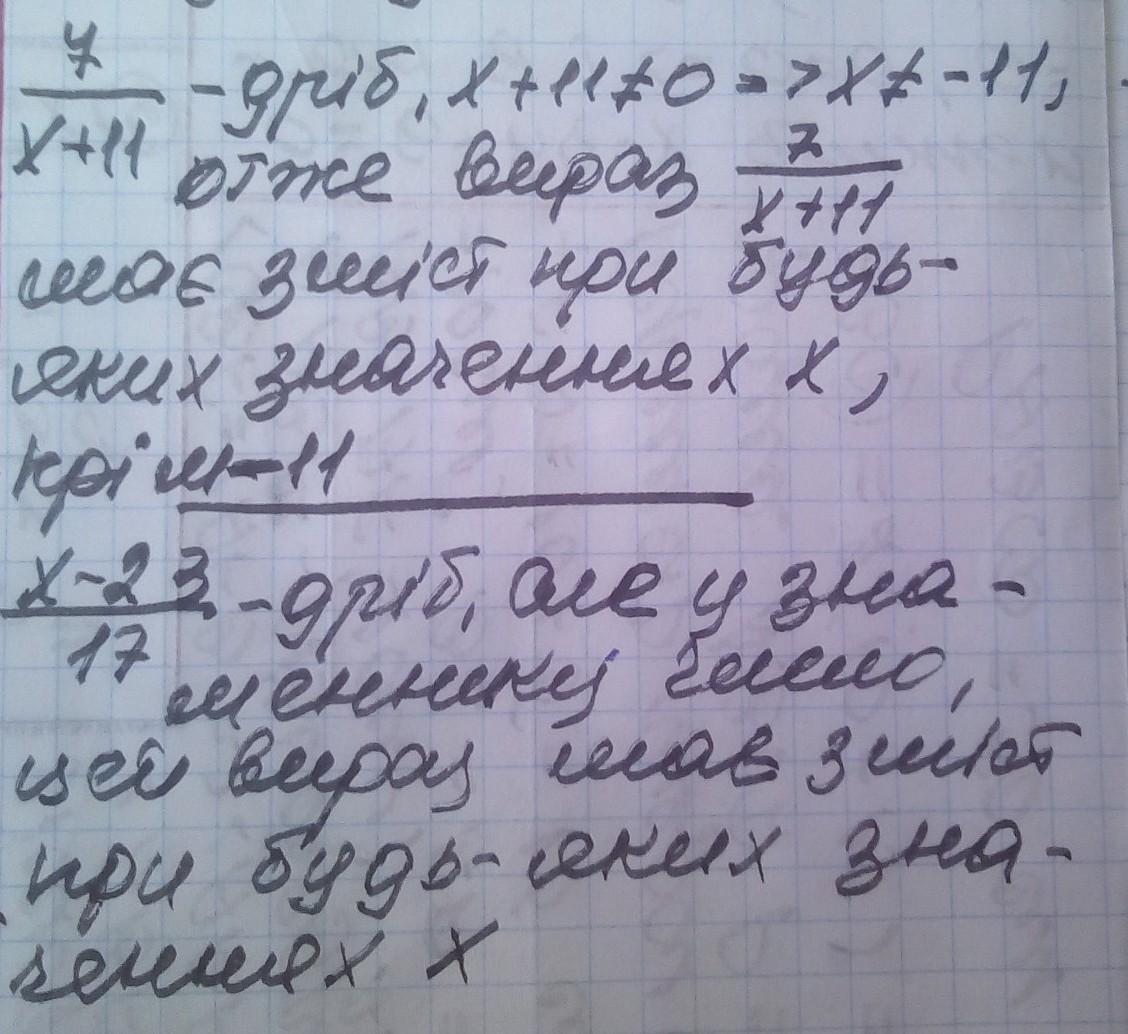 7/(x+11) - дріб, x+11≠0 => x≠-11,
отже вираз 7/(x+11)
має зміст при будь-
яких значеннях x,
крім -11
(x-23)/17 - дріб, але у зна-
меннику число,
цей вираз має зміст
при будь-яких зна-
ченнях x